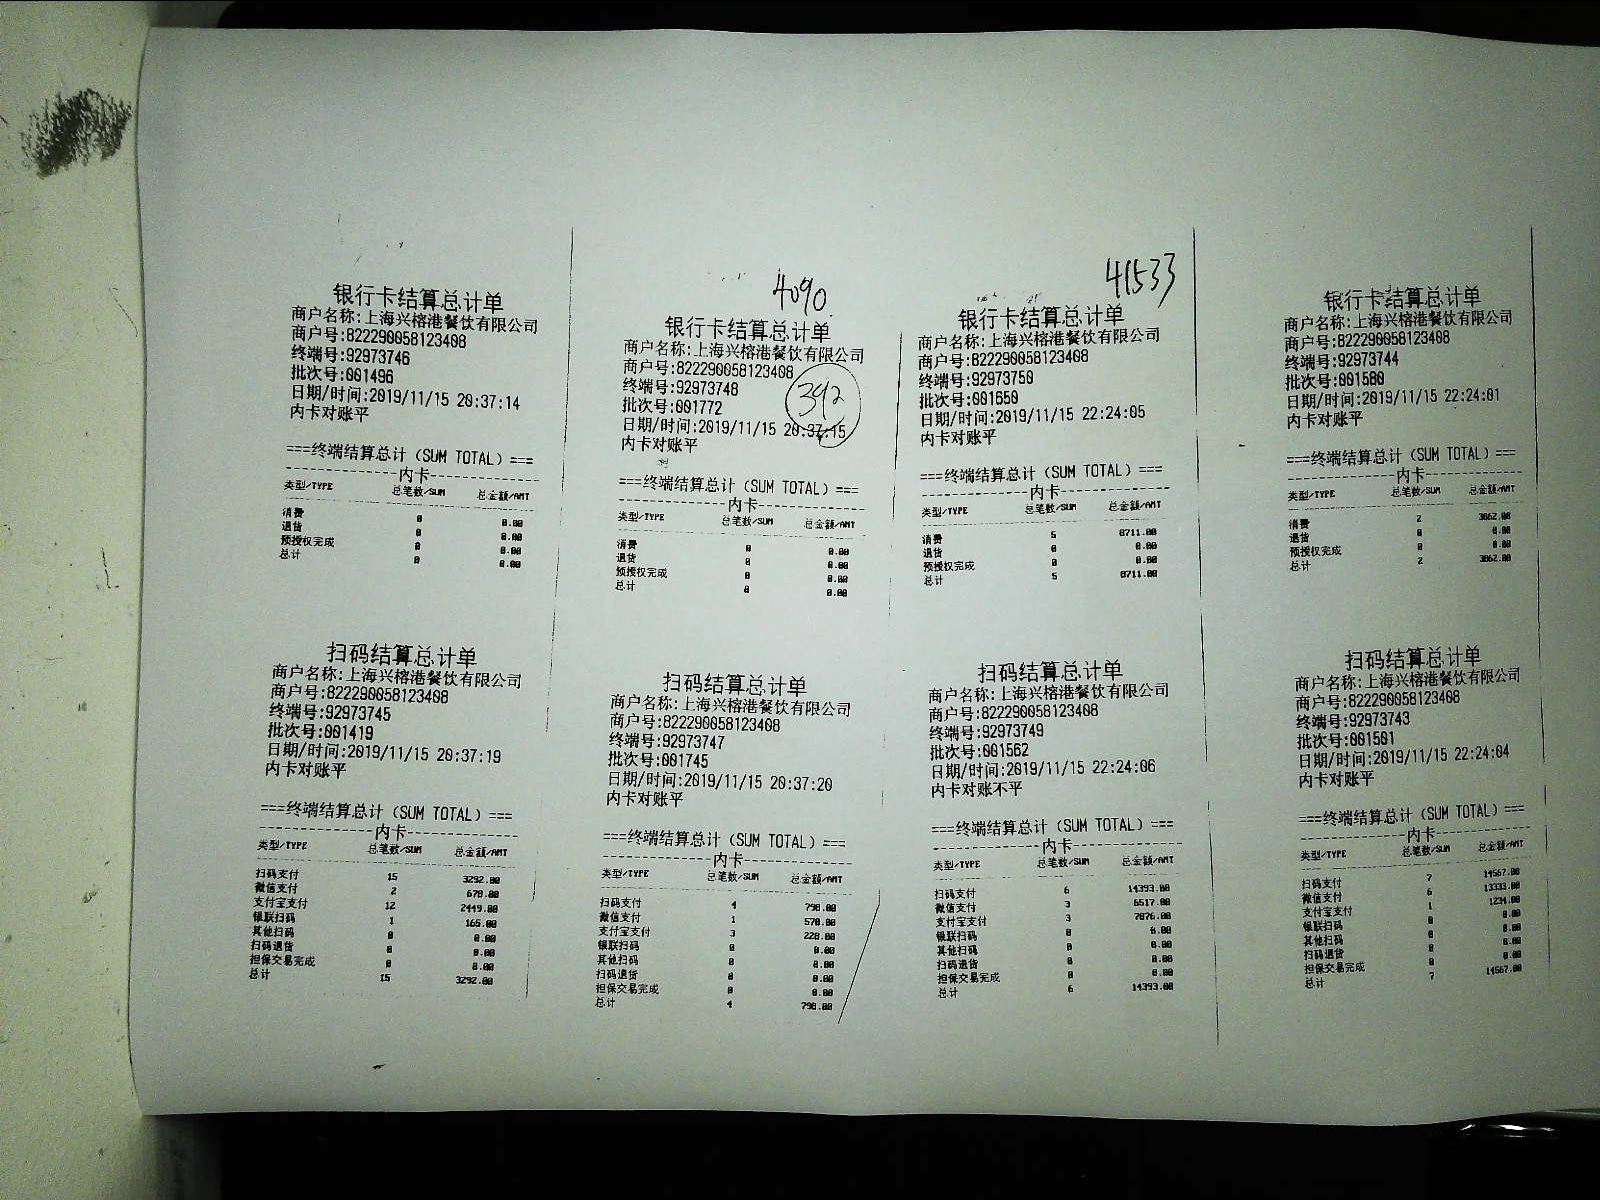 银行卡结算总计单
商户名称:上海兴榕港餐饮有限公司
商户号:822290058123408
终端号:92973746
批次号:001496
日期/时间:2019/11/15 20:37:14
内卡对账平
===终端结算总计(SUM TOTAL)===
内卡
类型/TYPE 总笔数/SUM 总金额/AMT
消费 0 0.00
退货 0 0.00
预授权完成 0 0.00
总计 0 0.00
扫码结算总计单
商户名称:上海兴榕港餐饮有限公司
商户号:822290058123408
终端号:92973745
批次号:001419
日期/时间:2019/11/15 20:37:19
内卡对账平
===终端结算总计(SUM TOTAL)===
内卡
类型/TYPE 总笔数/SUM 总金额/AMT
扫码支付 15 3292.00
微信支付 2 678.00
支付宝支付 12 2449.00
银联扫码 1 165.00
其他扫码 0 0.00
扫码退货 0 0.00
担保交易完成 0 0.00
总计 15 3292.00
4090
银行卡结算总计单
商户名称:上海兴榕港餐饮有限公司
商户号:822290058123408
终端号:92973748
392
批次号:001772
日期/时间:2019/11/15 20:37:15
内卡对账平
===终端结算总计(SUM TOTAL)===
内卡
类型/TYPE 总笔数/SUM 总金额/AMT
消费 0 0.00
退货 0 0.00
预授权完成 0 0.00
总计 0 0.00
扫码结算总计单
商户名称:上海兴榕港餐饮有限公司
商户号:822290058123408
终端号:92973747
批次号:001745
日期/时间:2019/11/15 20:37:20
内卡对账平
===终端结算总计(SUM TOTAL)===
内卡
类型/TYPE 总笔数/SUM 总金额/AMT
扫码支付 4 798.00
微信支付 1 570.00
支付宝支付 3 228.00
银联扫码 0 0.00
其他扫码 0 0.00
扫码退货 0 0.00
担保交易完成 0 0.00
总计 4 798.00
41533
银行卡结算总计单
商户名称:上海兴榕港餐饮有限公司
商户号:822290058123408
终端号:92973750
批次号:001650
日期/时间:2019/11/15 22:24:05
内卡对账平
===终端结算总计(SUM TOTAL)===
内卡
类型/TYPE 总笔数/SUM 总金额/AMT
消费 5 8711.00
退货 0 0.00
预授权完成 0 0.00
总计 5 8711.00
扫码结算总计单
商户名称:上海兴榕港餐饮有限公司
商户号:822290058123408
终端号:92973749
批次号:001562
日期/时间:2019/11/15 22:24:06
内卡对账不平
===终端结算总计(SUM TOTAL)===
内卡
类型/TYPE 总笔数/SUM 总金额/AMT
扫码支付 6 14393.00
微信支付 3 6517.00
支付宝支付 3 7876.00
银联扫码 0 0.00
其他扫码 0 0.00
扫码退货 0 0.00
担保交易完成 0 0.00
总计 6 14393.00
银行卡结算总计单
商户名称:上海兴榕港餐饮有限公司
商户号:822290058123408
终端号:92973744
批次号:001580
日期/时间:2019/11/15 22:24:01
内卡对账平
===终端结算总计(SUM TOTAL)===
内卡
类型/TYPE 总笔数/SUM 总金额/AMT
消费 2 3862.00
退货 0 0.00
预授权完成 0 0.00
总计 2 3862.00
扫码结算总计单
商户名称:上海兴榕港餐饮有限公司
商户号:822290058123408
终端号:92973743
批次号:001501
日期/时间:2019/11/15 22:24:04
内卡对账平
===终端结算总计(SUM TOTAL)===
内卡
类型/TYPE 总笔数/SUM 总金额/AMT
扫码支付 7 14567.00
微信支付 6 13333.00
支付宝支付 1 1234.00
银联扫码 0 0.00
其他扫码 0 0.00
扫码退货 0 0.00
担保交易完成 0 0.00
总计 7 14567.00